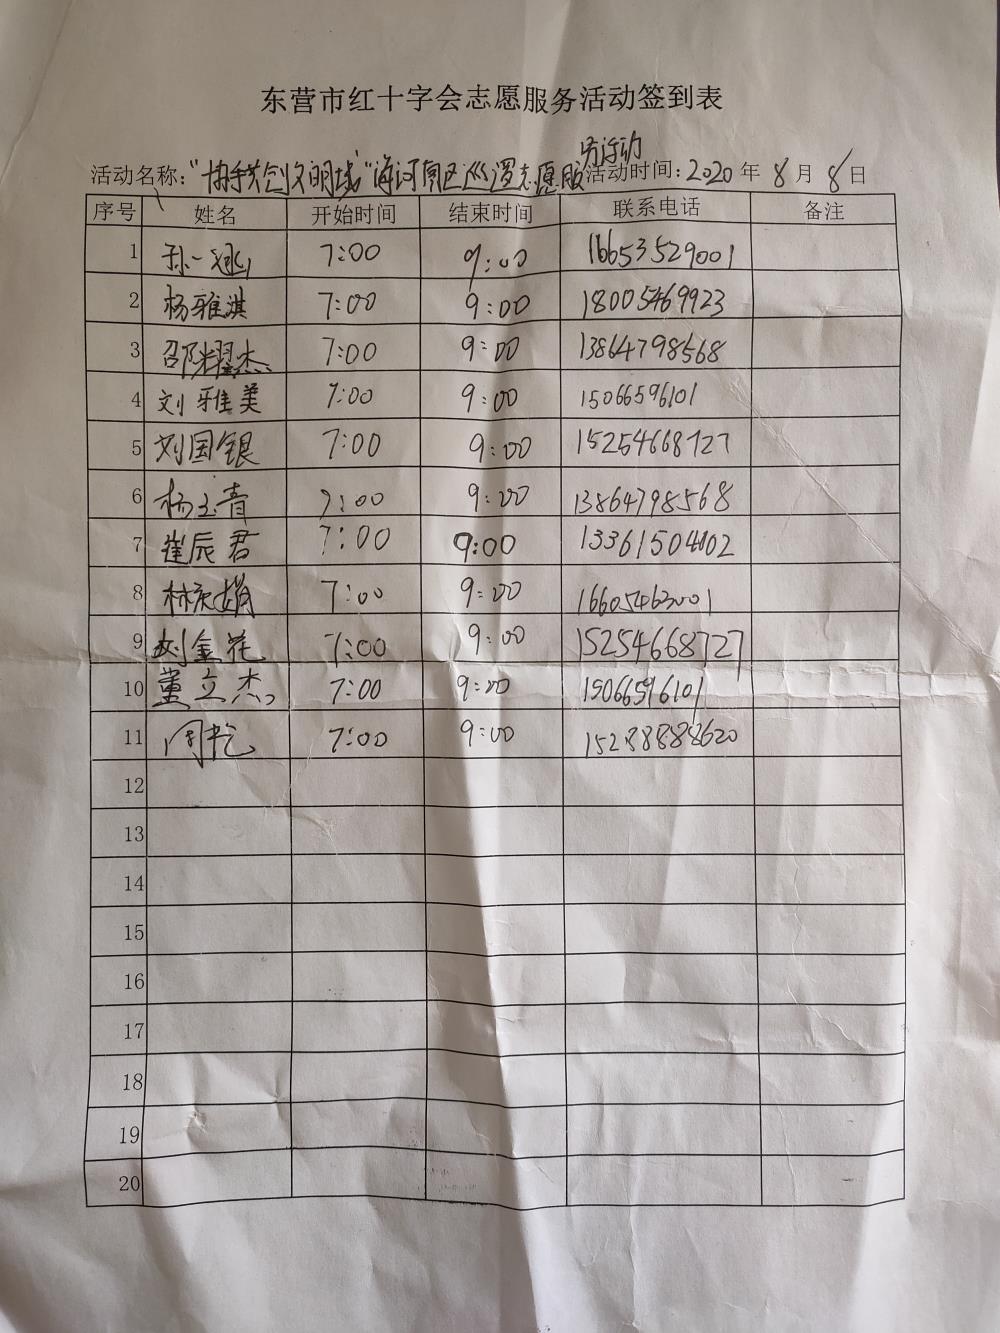 东营市红十字会志愿服务活动签到表
活动名称："协手共创文明城"海河南区巡逻志愿服务活动 活动时间：2020年8月8日
序号 姓名 开始时间 结束时间 联系电话 备注
1 孙一 7:00 9:00 16653529001
2 杨雅淇 7:00 9:00 18005469923
3 邵耀杰 7:00 9:00 13864798568
4 刘雅美 7:00 9:00 15066596101
5 刘国银 7:00 9:00 15254668727
6 杨玉青 7:00 9:00 13864798568
7 崔辰君 7:00 9:00 13361504402
8 林 娟 7:00 9:00 16605463001
9 刘金花 7:00 9:00 15254668727
10 董立杰 7:00 9:00 15066596101
11 周乾 7:00 9:00 15288888620
12
13
14
15
16
17
18
19
20